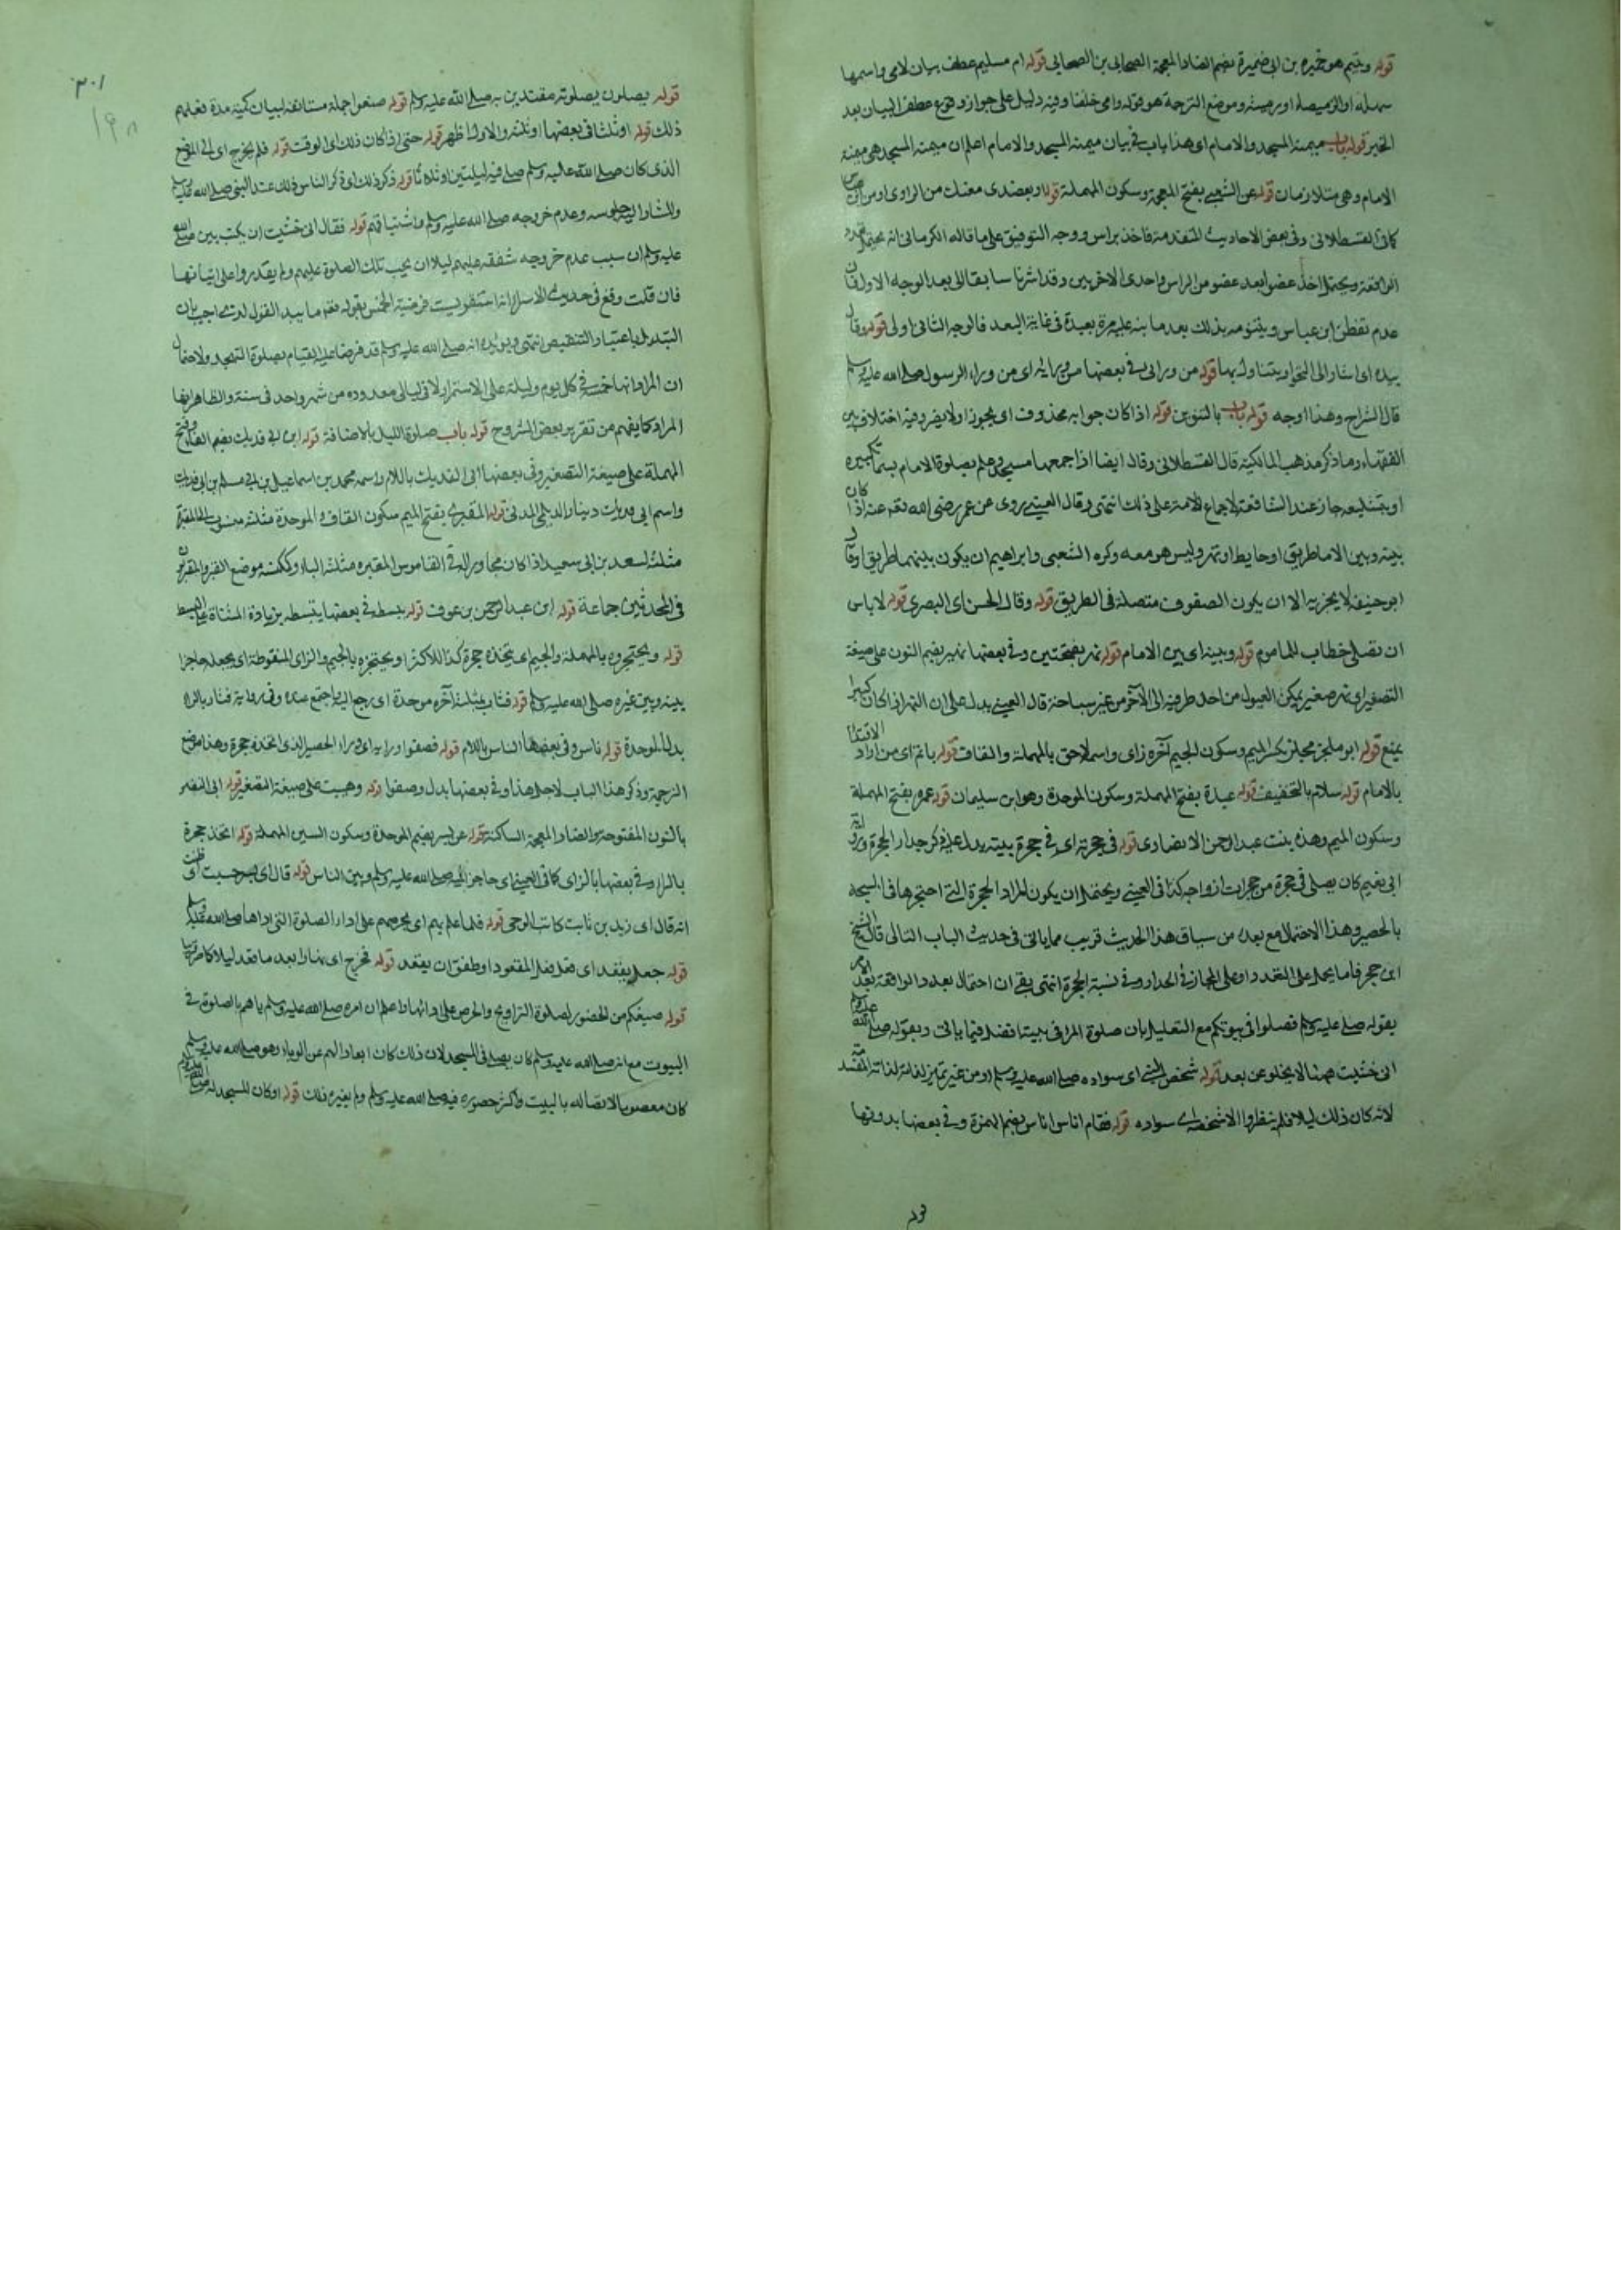 قوله ويتيم هو ضميره بن ابي ضميرة بضم الضاد المعجمة الصحابي بن الصحابي قوله ام سليم عطف بيان لامي واسمها
سهلة او الرميصاء او رميثة وموضع الترجمة هو قوله وامي خلفنا وفيه دليل على جواز وقوع عطف البيان بعد
الخبر قوله باب ميمنة المسجد والامام اي هذا باب في بيان ميمنة المسجد والامام اعلم ان ميمنة المسجد هي ميمنة
الامام وهي متلازمان قوله عن الشعبي بفتح المعجمة وسكون المهملة قوله او بعضدي شك من الراوي او من ابن عباس
كما في القسطلاني وفي بعض الاحاديث المتقدمة فاخذ براسي ووجه التوفيق على ما قاله الكرماني انه يحتمل تعدد
الواقعة ويحتمل اخذ عضوا بعد عضو من الراس واحدى الاخريين وقد اشرنا سابقا الى بعد الوجه الاول فان
عدم تفطن ابن عباس ويتنومه بذلك بعد ما بنه عليه مرة بعيدة في غاية البعد فالوجه الثاني اولى قوله وقال
بيده اي اشار الى النحو او يتناول بها قوله من ورائي في بعضها من ورائه اي من وراء الرسول صلى الله عليه وسلم
قال الشراح وهذا اوجه قوله باب بالتنوين قوله اذا كان جوابه محذوف اي يجوز او لا يضر وفيه اختلاف بين
الفقهاء وما ذكر مذهب المالكية قال القسطلاني وقال ايضا اذا جمعهما مسجد وعلم بصلوة الامام بسماع تكبيره
او بتبليغه جاز عند الشافعية لاجماع الامة على ذلك انتهى وقال العيني يروى عن عمر رضي الله تعم عنه اذا كان
بينه وبين الامام طريق او حايط او نهر وليس هو معه وكره الشعبي وابراهيم ان يكون بينهما طريق وقال
ابو حنيفة لا يجزيه الا ان يكون الصفوف متصلة في الطريق قوله وقال الحسن اي البصري قوله لا باس
ان تصلي خطاب للماموم قوله وبينه اي بين الامام قوله نهر بفتحتين وفي بعضها نهير بضم النون على صيغة
التصغير اي نهر صغير يمكن العبول من احد طرفيه الى الآخر من غير سباحة قال العيني يدل على ان النهر اذا كان كبيرا
يمنع الاقتداء قوله ابو مجلز بكسر الميم وسكون الجيم آخره زاي واسمه لاحق بالمهملة والقاف قوله ياتم اي من اراد
بالامام قوله سلام بالتخفيف قوله عبدة بفتح المهملة وسكون الموحدة وهو ابن سليمان قوله عمرة بفتح المهملة
وسكون الميم وهذه بنت عبد الرحمن الانصاري قوله في حجرته اي في حجرة بيته يدل عليه ذكر جدار الحجرة وفي رواية
ابي نعيم كان يصلي في حجرة من حجرات ازواجه كذا في العيني ويحتمل ان يكون المراد الحجرة التي احتجرها في المسجد
بالحصير وهذا الاحتمال مع بعده من سياق هذا الحديث قريب مما ياتي في حديث الباب التالي قال الشيخ
ابن حجر فاما يحمل على التعدد او على المجاز في الجدار وفي نسبة الحجرة انتهى بقي ان احتمال تعدد الواقعة بعد الامر
بقوله صلى عليه وسلم فصلوا في بيوتكم مع التعليل بان صلوة المرء في بيته افضل فيما ياتي وبقوله صلى الله عليه وسلم
اني خشيت ههنا لا يخلو عن بعد قوله شخص النبي اي سواده صلى الله عليه وسلم او من غير تميز لذاته المقدسة
لانه كان ذلك ليلا فلم ينظروا الا شخصه اي سواده قوله فقام اناس اناس بضم الهمزة وفي بعضها بدونها
قوله
٣٠١
١٩٨
قوله يصلون بصلوته مقتدين به صلى الله عليه وسلم قوله صنعوا جملة مستانفة لبيان كمية مدة فعلهم
ذلك قوله او ثلثا في بعضها او ثلثة والاول اظهر قوله حتى اذا كان ذلك اي الوقت قوله فلم يخرج اي الى الموضع
الذي كان صلى الله عليه وسلم صلى فيه ليلتين او ثلاثا قوله ذكر ذلك اي ذكر الناس ذلك عند النبي صلى الله عليه وسلم
والمشار اليه جلوسه وعدم خروجه صلى الله عليه وسلم واشتياقهم قوله فقال اني خشيت ان يكتب بين صلى الله
عليه وسلم ان سبب عدم خروجه شفقة عليهم ليلا ان يجب تلك الصلوة عليهم ولم يقدروا على اتيانها
فان قلت وقع في حديث الاسراء انه استقر ليست فرضية الخمس بقوله تعم ما يبدل القول لدي اجيب بان
التبديل باعتبار التنقيص انتهى ويؤيده انه صلى الله عليه وسلم قد فرض عليه القيام بصلوة التهجد ولاحتمال
ان المراد انها خمسة في كل يوم وليلة على الاستمرار لا في ليالي معدودة من شهر واحد في سنة والظاهر انها
المراد كما يفهم من تقرير بعض الشروح قوله باب صلوة الليل بالاضافة قوله ابن ابي فديك بضم الفاء وفتح
المهملة على صيغة التصغير وفي بعضها ابن ابي الفديك باللام واسمه محمد بن اسماعيل بن ابي مسلم بن ابي فديك
واسم ابي فديك دينار الديلي المدني قوله المقبري بفتح الميم سكون القاف والموحدة مثلثة منسوب الى المقبرة
مثلثة لسعد بن ابي سعيد اذا كان مجاورا له في القاموس المقبره مثلثة الباء وكمكنسة موضع القبر والمقبريون
في المحدثين جماعة قوله ابن عبد الرحمن بن عوف قوله يبسطه في بعضها يتبسطه بزيادة المثناة على البسط
قوله ويحتجره بالمهملة والجيم اي يتخذه حجرة كذا للاكثر او يحتجزه بالجيم والزاي المنقوطة اي يجعله حاجزا
بينه وبين غيره صلى الله عليه وسلم قوله فثاب بمثلثة آخره موحدة اي رجع اليه واجتمع عنده وفي رواية فثار بالراء
بدل الموحدة قوله ناس وفي بعضها الناس باللام قوله فصفوا وراءه اي وراء الحصير الذي اتخذه حجرة وهذا موضع
الترجمة وذكر هذا الباب لاجل هذا وفي بعضها بدل وصفوا قوله وهيب على صيغة التصغير قوله ابي النضر
بالنون المفتوحة والضاد المعجمة الساكنة قوله عن بسر بضم الموحدة وسكون السين المهملة قوله اتخذ حجرة
بالراء وفي بعضها بالزاي كما في العيني اي حاجزا بينه صلى الله عليه وسلم وبين الناس قوله قال اي بسر حسبت اي ظننت
انه قال اي زيد بن ثابت كاتب الوحي قوله فلما علم بهم اي بحرصهم على اداء الصلوة التي اداها صلى الله عليه وسلم
قوله جعل يقعد اي فعل فعل المقعود او طفق ان يقعد قوله فخرج اي نهارا بعد ما قعد ليلا كما مر آنفا
قوله صنيعكم من الحضور لصلوة التراويح والحرص على ادائها واعلم ان امره صلى الله عليه وسلم ياهم بالصلوة في
البيوت مع انه صلى الله عليه وسلم كان يصلي في المسجد لان ذلك كان ابعادا لهم عن الرياء وهو صلى الله عليه وسلم
كان معصوما لاتصاله بالبيت واكثر حضوره فيه صلى الله عليه وسلم ولم يغيره ذلك قوله او كان المسجد له صلى الله عليه وسلم